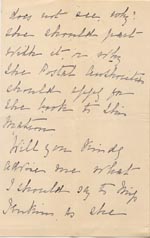 does not see why
she should part
with it or why
the Postal Authorities
should apply for
the book to the
Matron
Will you kindly
advise me what
I should say to Miss
Jenkins as she